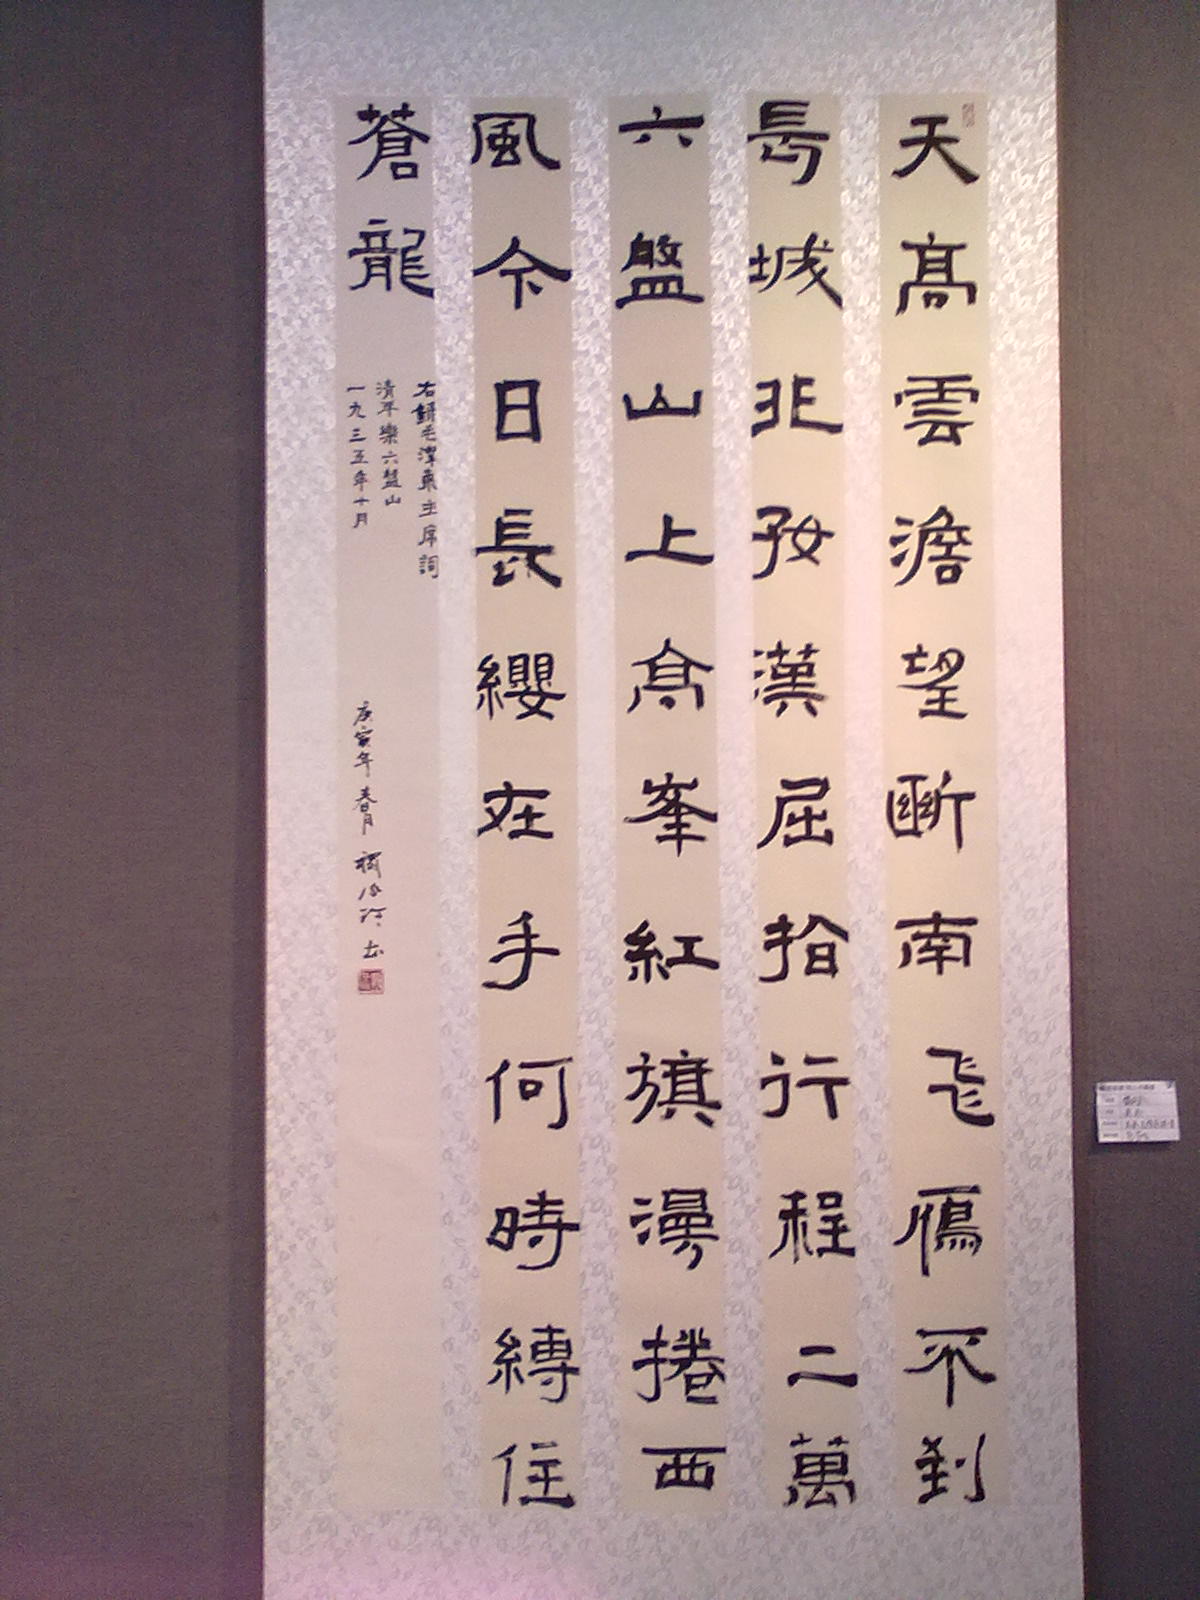 天高雲澹望斷南飛雁不到
長城非好漢屈指行程二萬
六盤山上高峯紅旗漫捲西
風今日長纓在手何時縛住
蒼龍
右錄毛澤東主席詞
清平樂六盤山
一九三五年十月
庚寅年春月